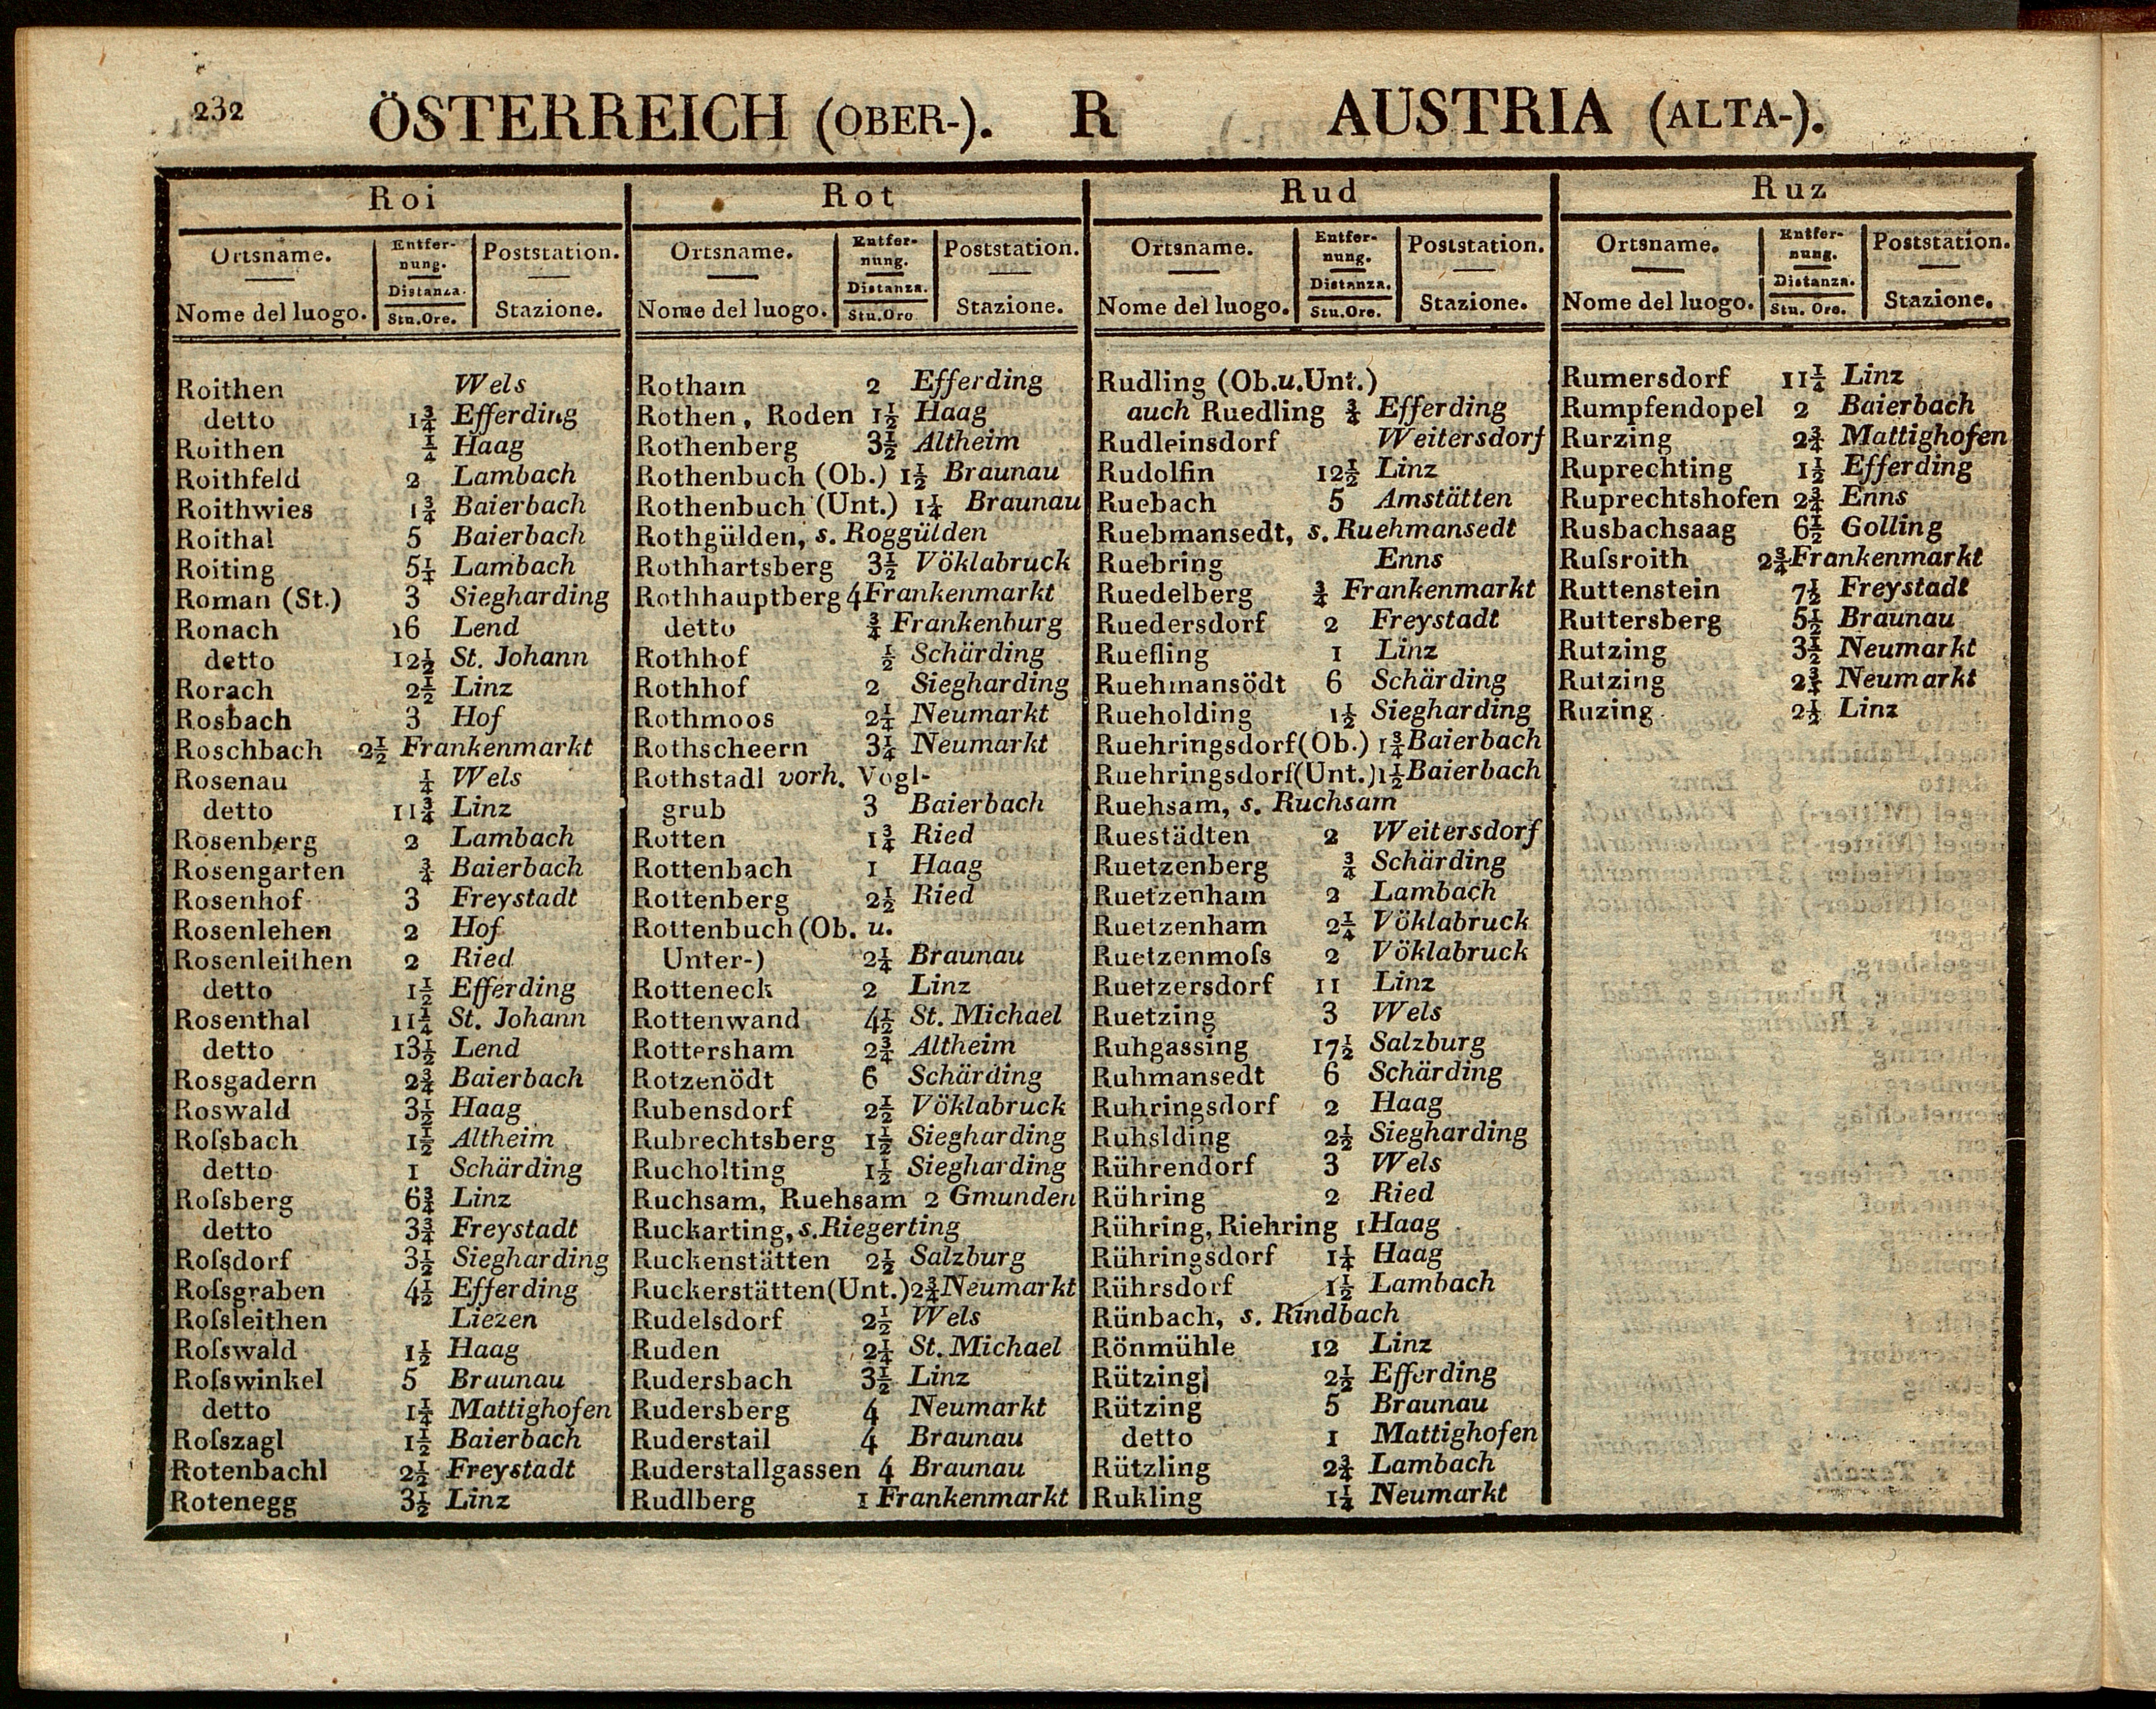 232 ÖSTERREICH (OBER-). R AUSTRIA (ALTA-).
Roi
Ortsname. Entfer-nung. Poststation.
Nome del luogo. Distanza. Stu.Ore. Stazione.
Roithen Wels
detto 1¾ Efferding
Roithen ¼ Haag
Roithfeld 2 Lambach
Roithwies 1¾ Baierbach
Roithal 5 Baierbach
Roiting 5¼ Lambach
Roman (St.) 3 Siegharding
Ronach 16 Lend
detto 12½ St. Johann
Rorach 2½ Linz
Rosbach 3 Hof
Roschbach 2½ Frankenmarkt
Rosenau ¼ Wels
detto 11¾ Linz
Rosenberg 2 Lambach
Rosengarten ¾ Baierbach
Rosenhof 3 Freystadt
Rosenlehen 2 Hof
Rosenleithen 2 Ried
detto 1½ Efferding
Rosenthal 11¼ St. Johann
detto 13½ Lend
Rosgadern 2¾ Baierbach
Roswald 3½ Haag
Roſsbach 1½ Altheim
detto 1 Schärding
Roſsberg 6¾ Linz
detto 3¾ Freystadt
Roſsdorf 3½ Siegharding
Roſsgraben 4½ Efferding
Roſsleithen Liezen
Roſswald 1½ Haag
Roſswinkel 5 Braunau
detto 1¼ Mattighofen
Roſszagl 1½ Baierbach
Rotenbachl 2½ Freystadt
Rotenegg 3½ Linz
Rot
Ortsname. Entfer-nung. Poststation.
Nome del luogo. Distanza. Stu.Ore Stazione.
Rotham 2 Efferding
Rothen, Roden 1½ Haag
Rothenberg 3½ Altheim
Rothenbuch (Ob.) 1½ Braunau
Rothenbuch (Unt.) 1¼ Braunau
Rothgülden, s. Roggülden
Rothhartsberg 3½ Vöklabruck
Rothhauptberg 4 Frankenmarkt
detto ¾ Frankenburg
Rothhof ½ Schärding
Rothhof 2 Siegharding
Rothmoos 2¼ Neumarkt
Rothscheern 3¼ Neumarkt
Rothstadl vorh. Vogl-
grub 3 Baierbach
Rotten 1¾ Ried
Rottenbach 1 Haag
Rottenberg 2½ Ried
Rottenbuch (Ob. u.
Unter-) 2¼ Braunau
Rotteneck 2 Linz
Rottenwand 4½ St. Michael
Rottersham 2¾ Altheim
Rotzenödt 6 Schärding
Rubensdorf 2½ Vöklabruck
Rubrechtsberg 1½ Siegharding
Rucholting 1½ Siegharding
Ruchsam, Ruehsam 2 Gmunden
Ruckarting, s. Riegerting
Ruckenstätten 2½ Salzburg
Ruckerstätten (Unt.) 2¾ Neumarkt
Rudelsdorf 2½ Wels
Ruden 2¼ St. Michael
Rudersbach 3½ Linz
Rudersberg 4 Neumarkt
Ruderstail 4 Braunau
Ruderstallgassen 4 Braunau
Rudlberg 1 Frankenmarkt
Rud
Ortsname. Entfer-nung. Poststation.
Nome del luogo. Distanza. Stu.Ore. Stazione.
Rudling (Ob.u.Unt.)
auch Ruedling ¾ Efferding
Rudleinsdorf Weitersdorf
Rudolfin 12½ Linz
Ruebach 5 Amstätten
Ruebmansedt, s. Ruehmansedt
Ruebring Enns
Ruedelberg ¾ Frankenmarkt
Ruedersdorf 2 Freystadt
Ruefling 1 Linz
Ruehmansödt 6 Schärding
Rueholding 1½ Siegharding
Ruehringsdorf (Ob.) 1¾ Baierbach
Ruehringsdorf (Unt.) 1½ Baierbach
Ruehsam, s. Ruchsam
Ruestädten 2 Weitersdorf
Ruetzenberg ¾ Schärding
Ruetzenham 2 Lambach
Ruetzenham 2¼ Vöklabruck
Ruetzenmoſs 2 Vöklabruck
Ruetzersdorf 11 Linz
Ruetzing 3 Wels
Ruhgassing 17½ Salzburg
Ruhmansedt 6 Schärding
Ruhringsdorf 2 Haag
Ruhslding 2½ Siegharding
Rührendorf 3 Wels
Rühring 2 Ried
Rühring, Riehring 1 Haag
Rühringsdorf 1¼ Haag
Rührsdorf 1½ Lambach
Rünbach, s. Rindbach
Rönmühle 12 Linz
Rützing 2½ Efferding
Rützing 5 Braunau
detto 1 Mattighofen
Rützling 2¾ Lambach
Rukling 1¼ Neumarkt
Ruz
Ortsname. Entfer-nung. Poststation.
Nome del luogo. Distanza. Stu. Ore. Stazione.
Rumersdorf 11¼ Linz
Rumpfendopel 2 Baierbach
Rurzing 2¾ Mattighofen
Ruprechting 1½ Efferding
Ruprechtshofen 2¾ Enns
Rusbachsaag 6½ Golling
Ruſsroith 2¾ Frankenmarkt
Ruttenstein 7½ Freystadt
Ruttersberg 5½ Braunau
Rutzing 3½ Neumarkt
Rutzing 2¾ Neumarkt
Ruzing 2½ Linz